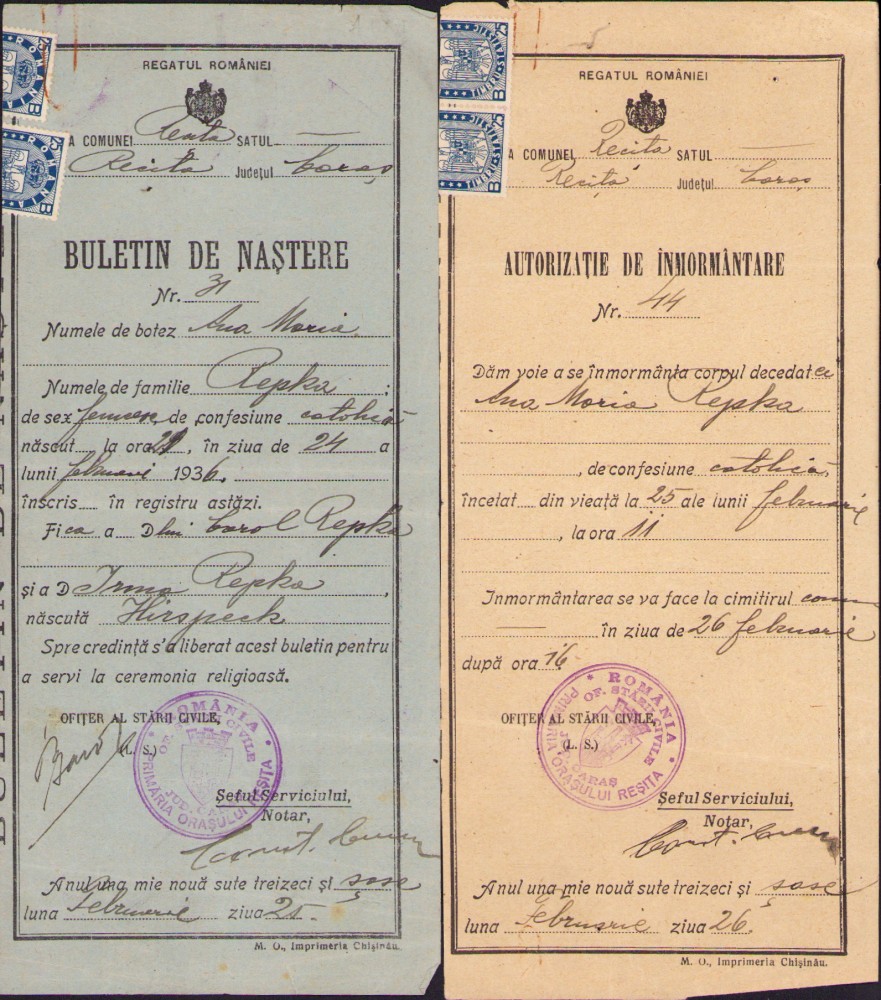 REGATUL ROMÂNIEI
A COMUNEI Recița SATUL
Recița Județul Caraș
BULETIN DE NAȘTERE
Nr. 31
Numele de botez Ana Maria
Numele de familie Repka ;
de sex femeesc de confesiune catolică
născut la ora 21, în ziua de 24 a
lunii februarie 1936.
înscris în registru astăzi.
Fica a Dlui Carol Repka
și a D Irma Repka,
născută Hirspeck
Spre credință s'a liberat acest buletin pentru
a servi la ceremonia religioasă.
OFIȚER AL STĂRII CIVILE,
(L. S.)
ROMÂNIA
OF. STĂRII CIVILE
JUD. CARAȘ
PRIMĂRIA ORAȘULUI REȘIȚA
Șeful Serviciului,
Notar,
Anul una mie nouă sute treizeci și șase
luna Februarie ziua 25.
M. O., Imprimeria Chișinău.
REGATUL ROMÂNIEI
A COMUNEI Recița SATUL
Recița Județul Caraș
AUTORIZAȚIE DE ÎNMORMÂNTARE
Nr. 44
Dăm voie a se înmormânta corpul decedatei
Ana Maria Repka
, de confesiune catolică,
încetat din vieață la 25 ale lunii februarie
, la ora 11
Inmormântarea se va face la cimitirul comun
în ziua de 26 februarie
după ora 16.
OFIȚER AL STĂRII CIVILE,
(L. S.)
ROMÂNIA
OF. STĂRII CIVILE
JUD. CARAȘ
PRIMĂRIA ORAȘULUI REȘIȚA
Șeful Serviciului,
Notar,
Anul una mie nouă sute treizeci și șase
luna Februarie ziua 26.
M. O., Imprimeria Chișinău.